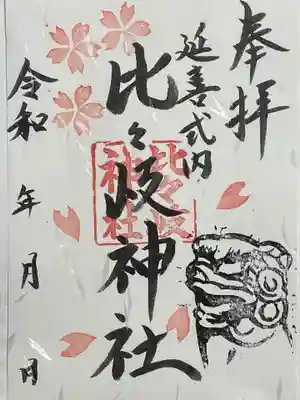 奉拝
延喜式内
比々岐神社
比々岐
神社
令和 年 月 日